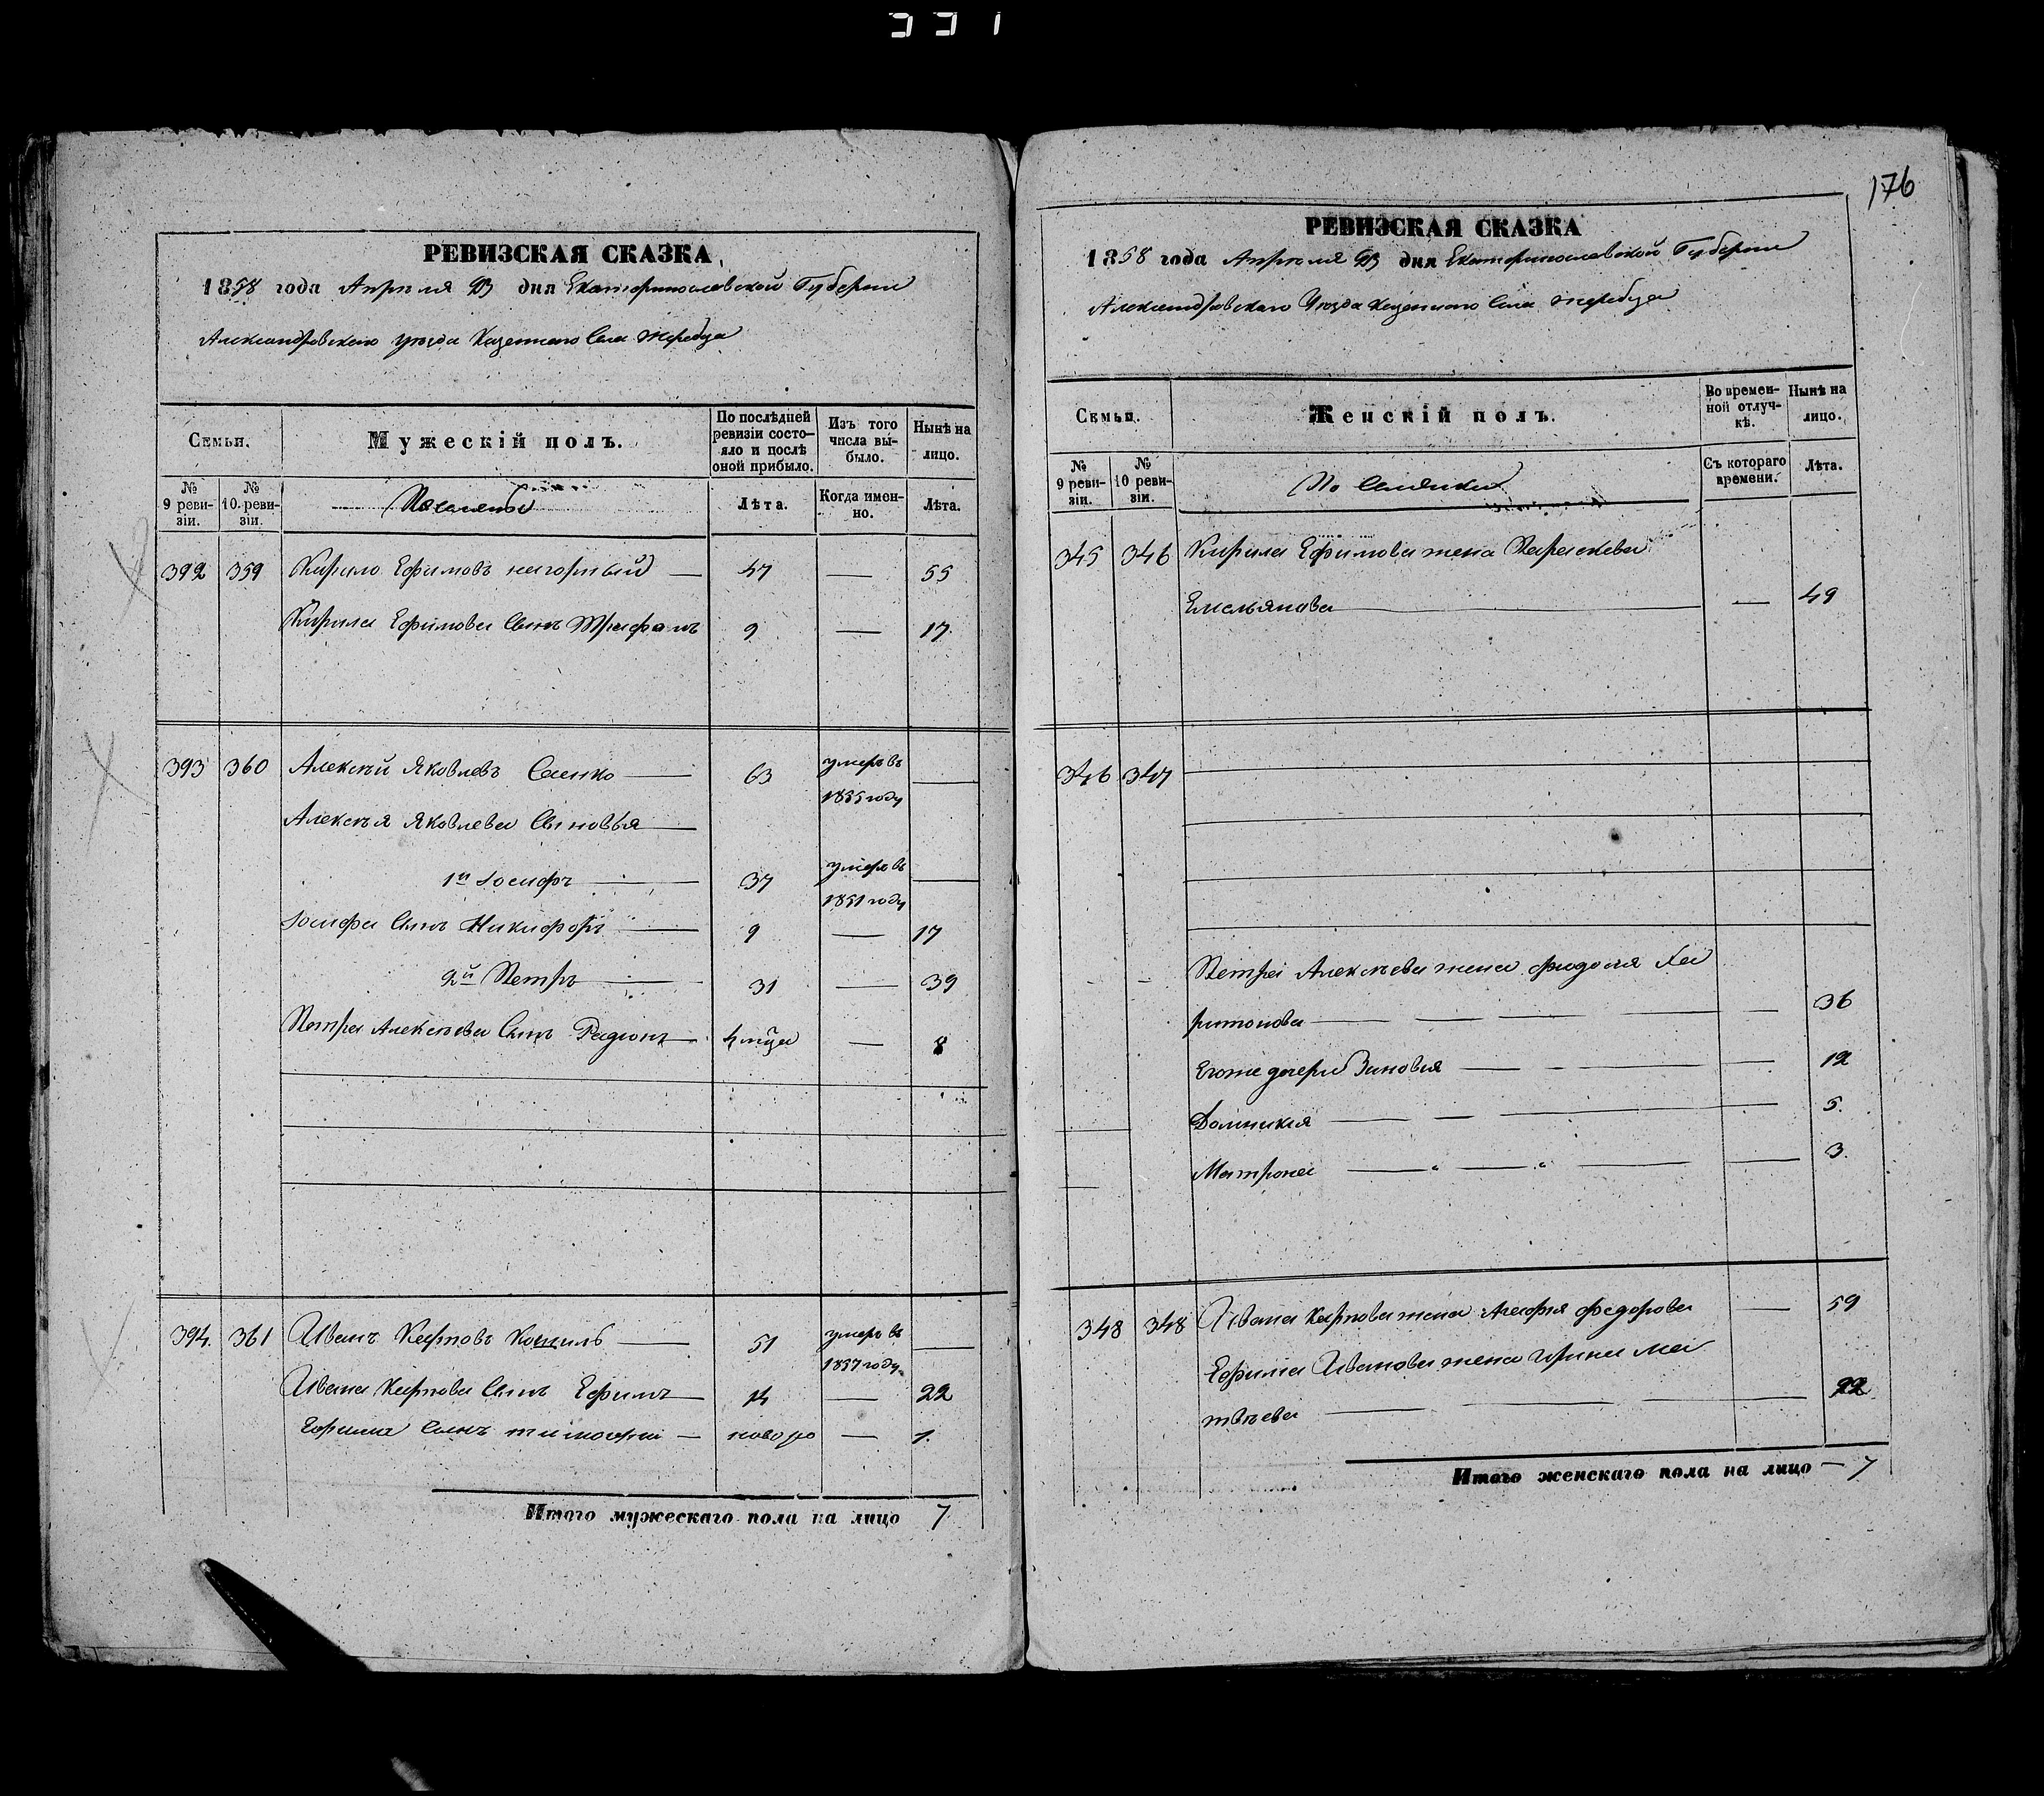 331
РЕВИЗСКАЯ СКАЗКА
1858 года Апреля дня Екатеринославской Губернии
Александровского уезда Казенного Села Жеребца
Семьи.
Мужескій полъ.
По послѣдней ревизіи состо-
яло и послѣ оной прибыло.
Изъ того числа вы-
было.
Нынѣ на лицо.
№ 9 реви-
зіи.
№ 10 реви-
зіи.
Лѣта.
Когда имен-
но.
Лѣта.
392 359 Кирило Ефимовъ нагорный — 47 — 55
Кирила Ефимова Сынъ Трифонъ 9 — 17.
393 360 Алексѣй Яковлевъ Саенко — 63 умеръ въ 1855 году —
Алексѣя Яковлева Сыновья —
1й Іосифъ — 37 умеръ въ 1851 году —
Іосифа Сынъ Никифоръ — 9 — 17
2й Петръ — 31 — 39
Петра Алексѣева Сынъ Радионъ — 4 мца — 8
394. 361 Иванъ Карповъ — 51 умеръ въ 1857 году —
Ивана Карпова Сынъ Ефимъ — 14 — 22
Ефима Сынъ тимофей — новоро — 1.
Итого мужескаго пола на лицо 7
176
РЕВИЗСКАЯ СКАЗКА
1858 года Апреля дня Екатеринославской Губернии
Александровскаго Уезда Казенного Села Жеребца
Семьи.
Женскій полъ.
Во времен-
ной отлуч-
кѣ.
Нынѣ на лицо.
№ 9 реви-
зіи.
№ 10 реви-
зіи.
Поселянки
Съ котораго времени.
Лѣта.
345 346 Кирила Ефимова жена Параскева
Емельянова — — 49
346 347
Петра Алексѣева жена Ха
ритонова — — 36
Егоже дочери Зиновья — — 12
Домникія — — 5.
Матрона — — 3.
348 348 Ивана Карпова жена Агафья федорова — 59
Ефима Иванова жена Ирина Ма
твѣева — — 22
Итого женскаго пола на лицо — 7